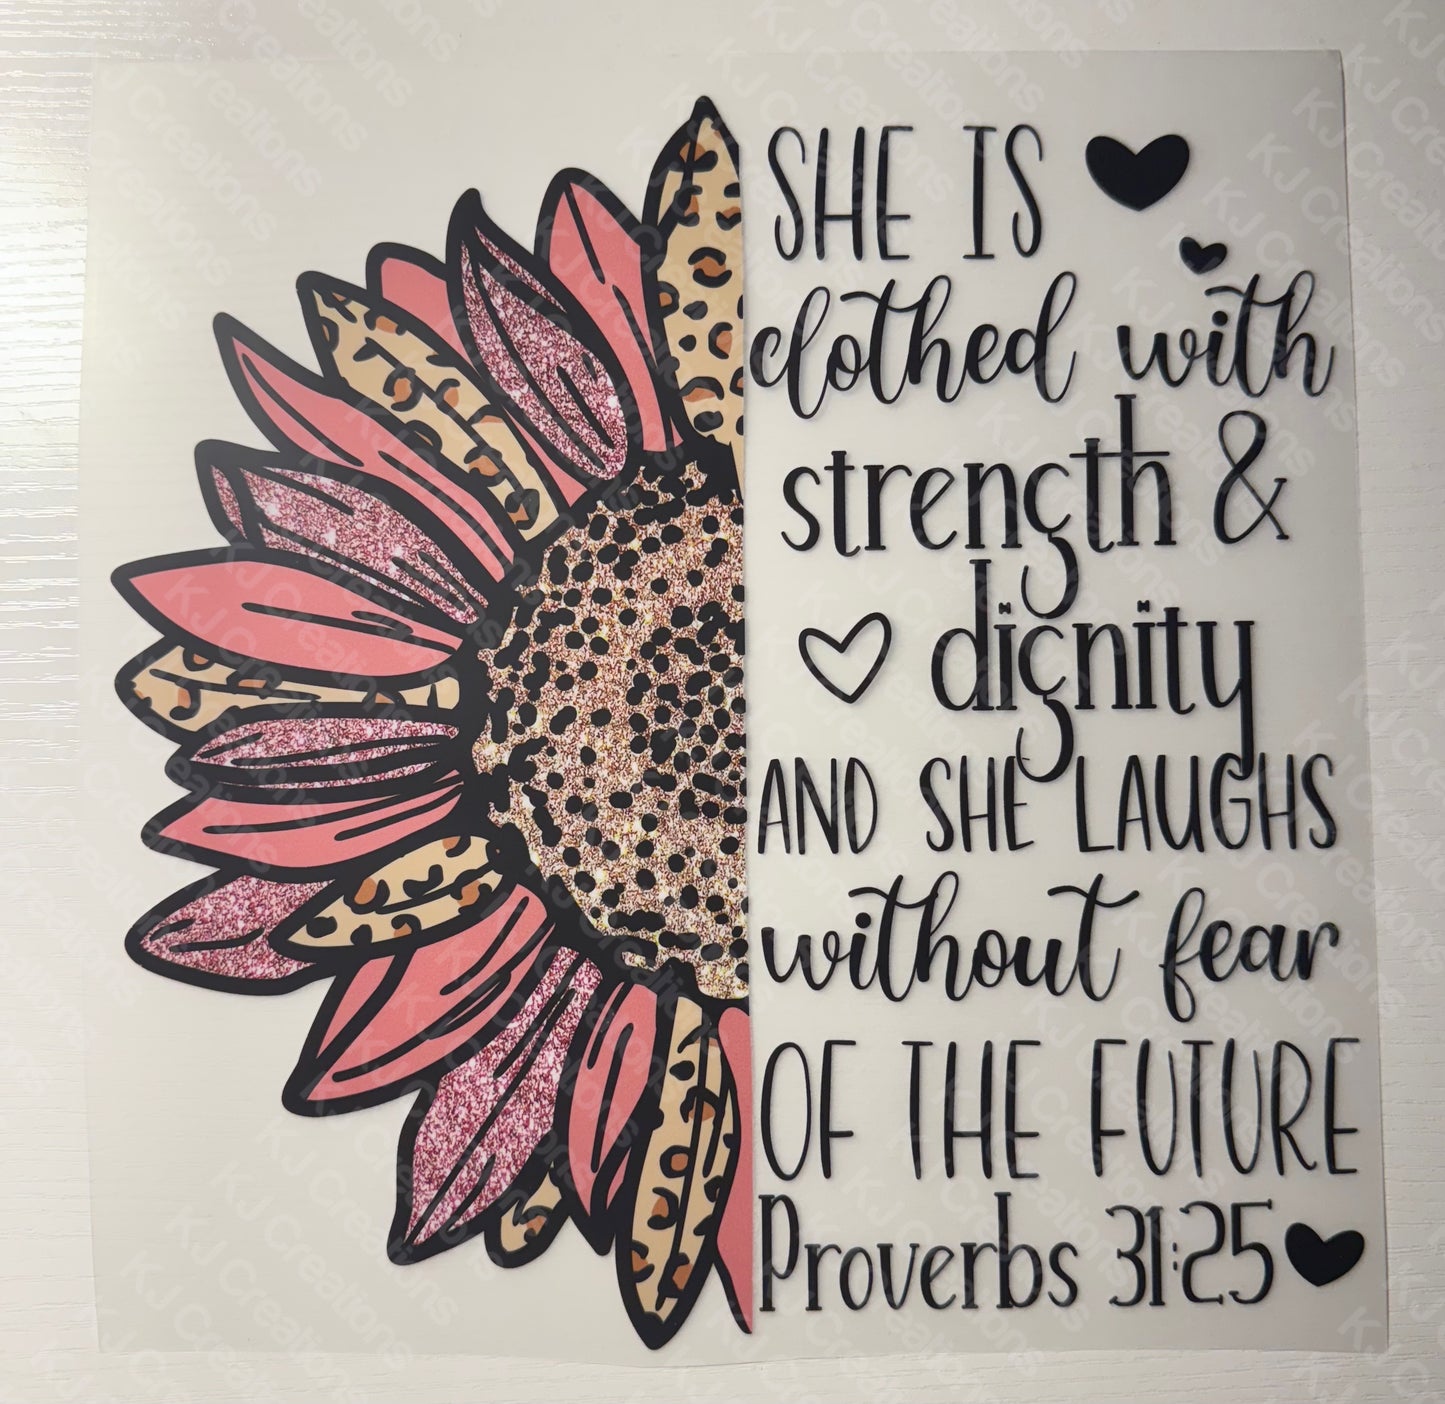 SHE IS
clothed with
strength &
dignity
AND SHE LAUGHS
without fear
OF THE FUTURE
Proverbs 31:25
KJ Creations